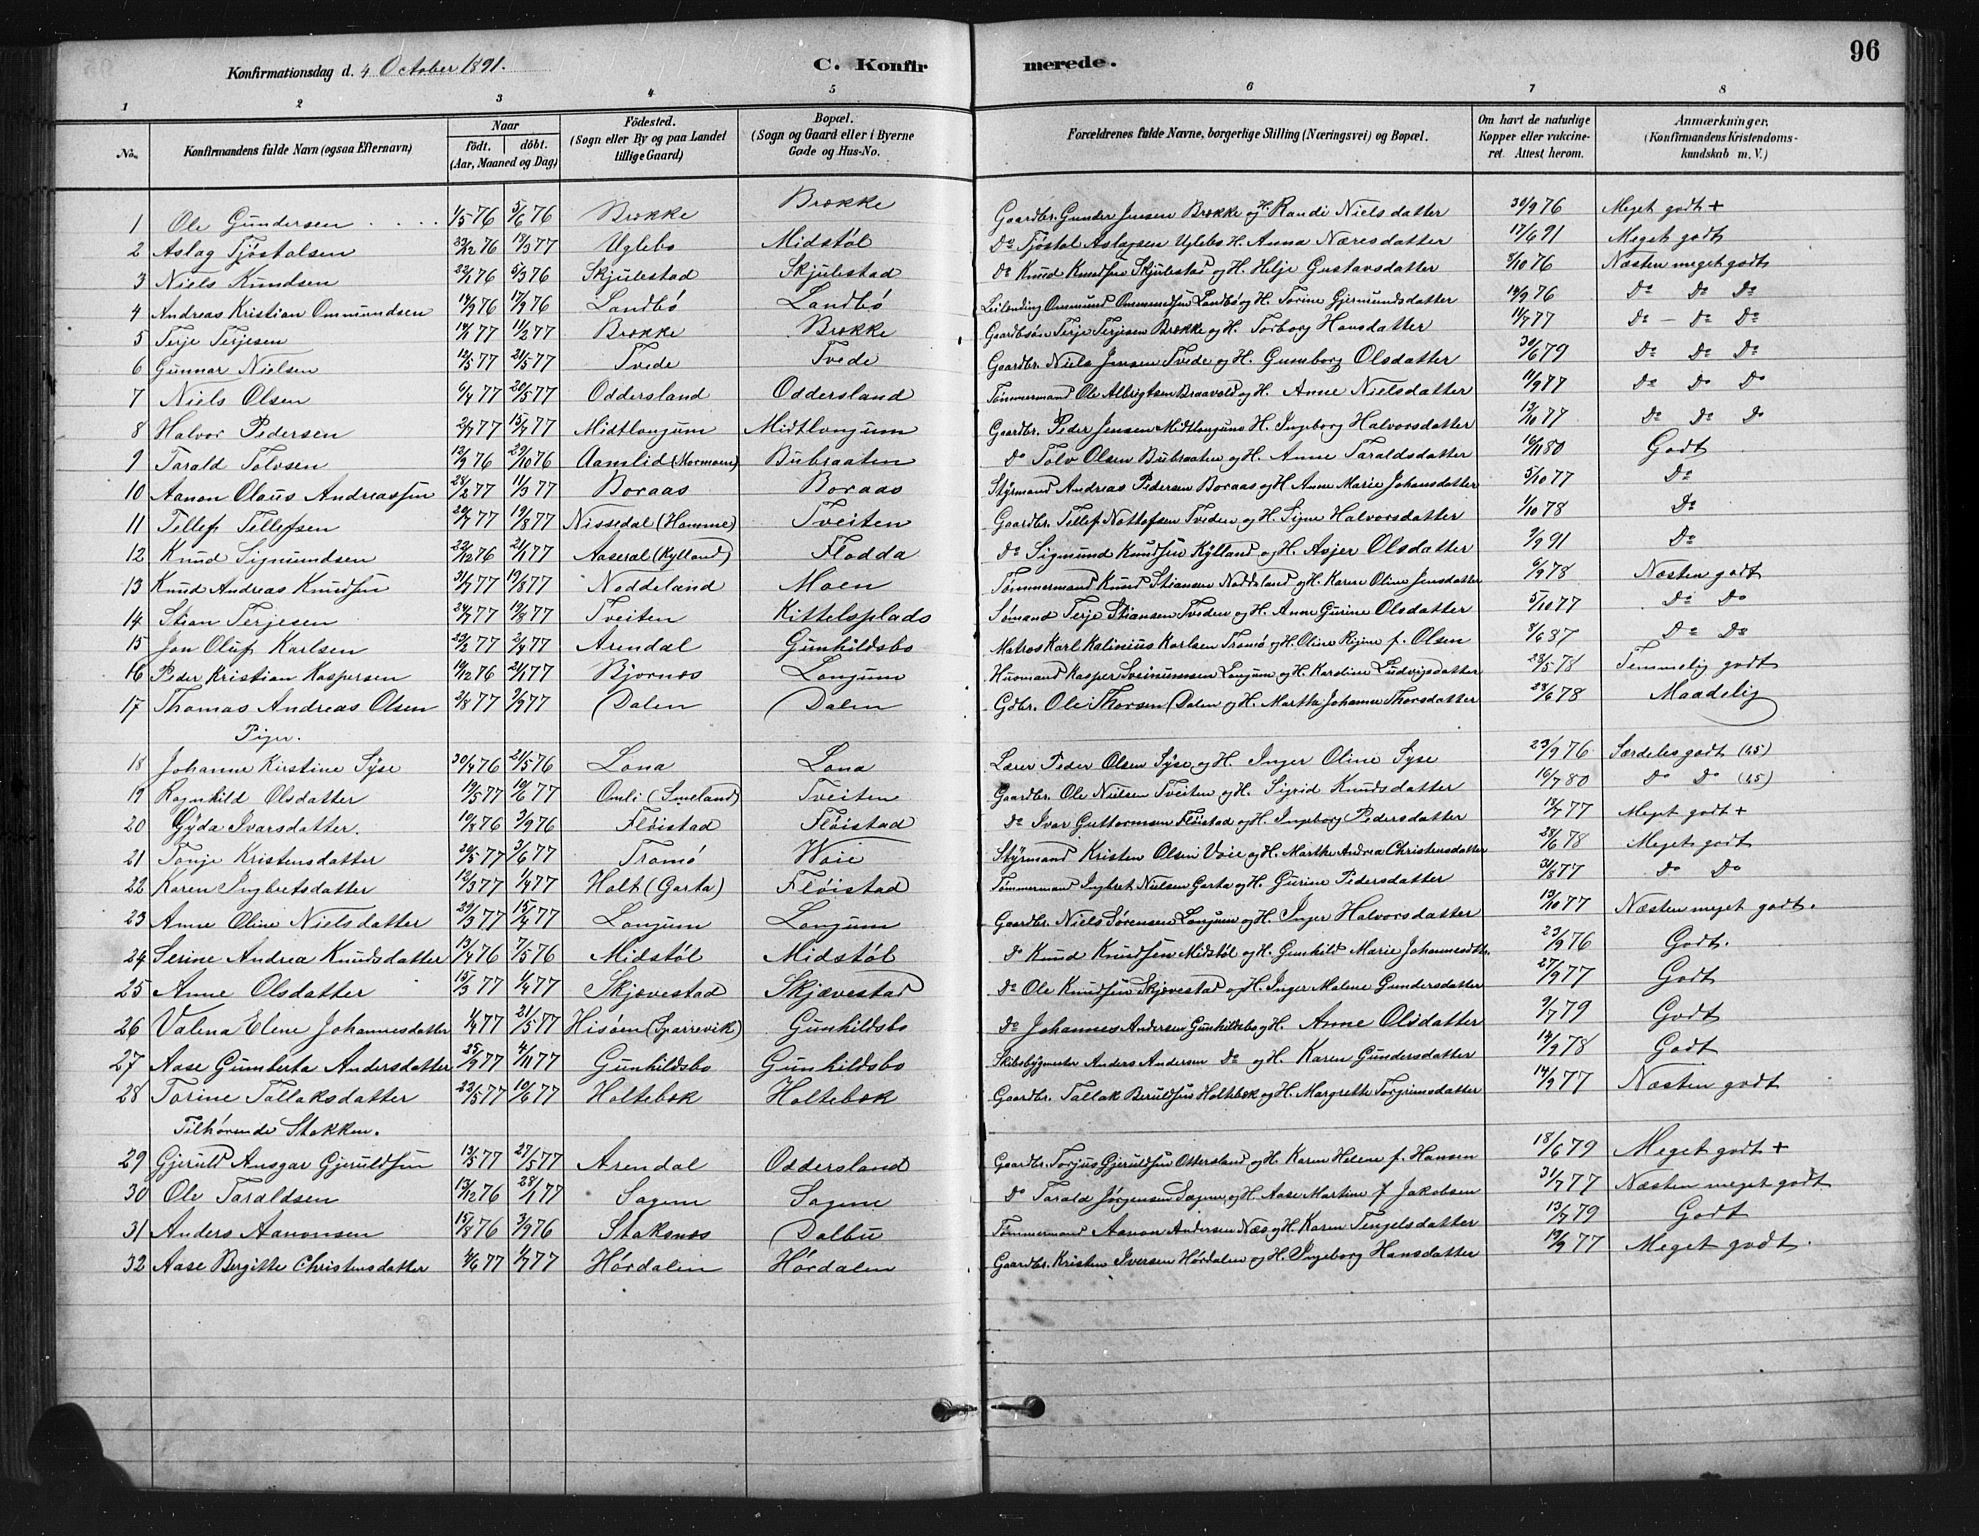 Konfirmationsdag d. 4 October 1891. C. Konfirmerede. 96
1 2 3 4 5 6 7 8
No. Konfirmandens fulde Navn (ogsaa Efternavn) Naar födt. döbt. (Aar, Maaned og Dag) Födested. (Sogn eller By og paa Landet tillige Gaard) Bopæl. (Sogn og Gaard eller i Byerne Gade og Hus-No. Forældrenes fulde Navne, borgerlige Stilling (Næringsvei) og Bopæl. Om havt de naturlige Kopper eller vakcineret. Attest herom. Anmærkninger. (Konfirmandens Kristendomskundskab m. V.)
1 Ole Gundersen 1/5 76 5/6 76 Brække Brække Gaardbr. Gunder Jensen Brække og H. Randi Nielsdatter 30/9 76 Meget godt +
2 Aslag Tjøstolsen 18/3 77 Uglebo Midstøl Do Tjøstol Aslagsen Uglebo H. Anna Næresdatter 17/6 91 Meget godt
3 Niels Knudsen 22/1 76 5/3 76 Skjulestad Skjulestad Do Knud Knudsen Skjulestad og H. Helje Gustavsdatter 8/10 76 Næsten meget godt
4 Andreas Kristian Ommundsen 17/9 76 Landbö Landbö Leilending Ommund Ommundsen Landbö og H. Torine Gjermundsdatter 14/9 76 Do Do Do
5 Terje Terjesen 11/2 77 Brække Brække Gaardbsön Terje Terjesen Brække og H. Torborg Hansdatter 11/7 77 Do - Do Do
6 Gunnar Nielsen 21/5 77 Tvede Tvede Gaardbr. Niels Jensen Tvede og H. Gunborg Olsdatter 30/6 79 Do Do Do
7 Niels Olsen 6/4 77 20/5 77 Oddersland Oddersland Tømmermand Ole Albrigtsen Braavold og H. Anne Nielsdatter 11/9 77 Do Do Do
8 Halvor Pedersen 15/7 77 Midtlongum Midtlongum Gaardbr. Peder Jensen Midtlongum H. Ingeborg Halvorsdatter 13/10 77 Do Do Do
9 Tarald Tolvsen 12/9 76 29/10 76 Aamlid (Mormoen) Bubraaten Do Tolv Olsen Bubraaten og H. Anne Taraldsdatter 16/11 80 Godt
10 Aanon Olaus Andreassen 28/2 77 11/3 77 Boraas Boraas Styrmand Andreas Pedersen Boraas og H. Anne Marie Johansdatter 5/10 77 Do
11 Tellef Tellefsen 20/7 77 19/8 77 Nissedal (Homme) Tveiten Gaardbr. Tellef Nottofsen Tveden og H. Signe Halvorsdatter 1/10 78 Do
12 Knud Sigmundsen 22/12 76 21/1 77 Aaseral (Kylland) Flodda Do Sigmund Knudsen Kylland og H. Asjer Olsdatter 9/9 91 Do
13 Knud Andreas Knudsen 31/7 77 19/8 77 Noddeland Moen Tömmermand Knud Stiansen Noddeland og H. Karen Oline Jensdatter 6/9 78 Næsten godt
14 Stian Terjesen 24/7 77 19/8 77 Tveiten Kittelsplads Sømand Terje Stiansen Tveden og H. Anne Gurine Olsdatter 5/10 77 Do Do
15 Jon Oluf Karlsen 2/4 77 Arendal Gunhildsbo Matros Karl Kalinius Karlsen Tromö og H. Oline Regine f. Olsen 8/6 87 Do Do
16 Peder Kristian Kaspersen 14/12 76 21/1 77 Bjornes Longum Husmand Kasper Sveinumsen Longum og H. Karoline Ludvigsdatter 28/5 78 Temmelig godt
17 Thomas Andreas Olsen 2/8 77 2/9 77 Dalen Dalen Gdbr. Ole Thorsen Dalen og H. Martha Johanne Thorsdatter 28/6 78 Maadelig
Piger.
18 Johanne Kirstine Syse 30/4 76 21/5 76 Lona Lona Lærer Peder Olsen Syse og H. Inger Oline Syse 23/9 76 Særdeles godt (1,5)
19 Ragnhild Olsdatter 19/5 77 10/6 77 Omli (Smeland) Tveiten Gaardbr. Ole Nielsen Tveiten og H. Sigrid Knudsdatter 16/7 80 Do Do (1,5)
20 Gyda Ivarsdatter. 10/8 76 3/9 76 Flöistad Flöistad Do Ivar Guttormsen Flöistad og H. Ingeborg Pedersdatter 13/7 77 Meget godt +
21 Tonje Kristensdatter 20/5 77 3/6 77 Tromö Woie Styrmand Kristen Olsen Voie og H. Marthe Andrea Christensdatter 28/6 78 Meget godt
22 Karen Ingbretsdatter 12/3 77 1/4 77 Holt (Garta) Flöistad Tømmermand Ingbret Nielsen Garta og H. Gurine Pedersdatter 31/8 77 Do Do
23 Anne Oline Nielsdatter 29/3 77 15/4 77 Longum Longum Gaardbr. Niels Sörensen Longum og H. Inger Halvorsdatter 13/10 77 Næsten meget godt.
24 Serine Andrea Knudsdatter 13/4 76 7/5 76 Midstöl Midstöl Do Knud Knudsen Midstöl og H. Gunhild Marie Johannesdtr. 23/9 76 Godt.
25 Anne Olsdatter 15/3 77 1/4 77 Skjævestad Skjævestad Do Ole Knudsen Skjævestad og H. Inger Malene Gundersdatter 27/9 77 Godt
26 Valena Eline Johannesdatter 1/4 77 21/5 77 Hisöen (Sparrevik) Gunhildsbo Do Johannes Andersen Gunhildsbo og H. Anne Olsdatter 9/7 79 Godt
27 Aase Gumberta Andersdatter 25/9 77 4/11 77 Gunhildsbo Gunhildsbo Skibsbygmester Anders Andersen Do og H. Karen Gundersdatter 14/9 78 Godt
28 Torine Tallaksdatter 22/5 77 10/6 77 Holtebæk Holtebæk Gaardbr. Tallak Beruldsen Holtebæk og H. Margrethe Torgrimsdatter 14/9 77 Næsten godt
Tilhörende Stokken.
29 Gjeruld Ansgar Gjeruldsen 13/5 77 27/5 77 Arendal Oddersland Gaardbr. Torjus Gjeruldsen Ottersland og H. Karen Helene f. Hansen 18/6 79 Meget godt +
30 Ole Taraldsen 13/12 76 28/1 77 Sagene Sagene Do Tarald Jörgensen Sagene og H. Aase Martine f Jakobsen 31/7 77 Næsten meget godt
31 Anders Aanonsen 15/8 76 3/9 76 Staksnes Dalbu Tömmermand Aanon Andersen Næs og H. Karen Tengelsdatter 13/7 79 Godt
32 Aase Bergitte Christensdatter 4/6 77 1/7 77 Hördalen Hördalen Gaardbr. Kristen Iversen Hördalen og H. Ingeborg Hansdatter 19/9 77 Meget godt.